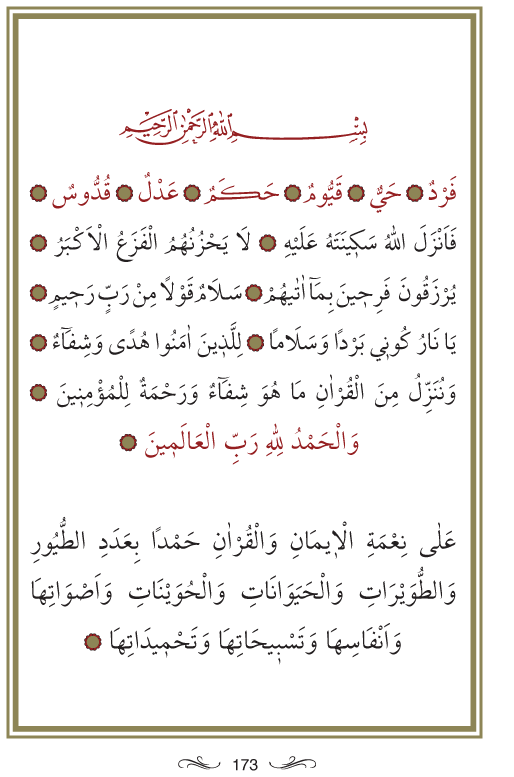 بِسْمِ اللهِ الرَّحْمٰنِ الرَّحِيمِ
فَرْدٌ ۞ حَيٌّ ۞ قَيُّومٌ ۞ حَكَمٌ ۞ عَدْلٌ ۞ قُدُّوسٌ ۞
فَاَنْزَلَ اللهُ سَكِينَتَهُ عَلَيْهِ ۞ لَا يَحْزُنُهُمُ الْفَزَعُ الْاَكْبَرُ ۞
يُرْزَقُونَ فَرِحِينَ بِمَٓا اٰتٰيهُمْ ۞ سَلَامٌ قَوْلًا مِنْ رَبٍّ رَحِيمٍ ۞
يَا نَارُ كُونِي بَرْدًا وَسَلَامًا ۞ لِلَّذِينَ اٰمَنُوا هُدًى وَشِفَٓاءٌ ۞
وَنُنَزِّلُ مِنَ الْقُرْاٰنِ مَا هُوَ شِفَٓاءٌ وَرَحْمَةٌ لِلْمُؤْمِنِينَ ۞
وَالْحَمْدُ لِلّٰهِ رَبِّ الْعَالَمِينَ ۞
عَلٰى نِعْمَةِ الْاِيمَانِ وَالْقُرْاٰنِ حَمْدًا بِعَدَدِ الطُّيُورِ
وَالطُّوَيْرَاتِ وَالْحَيَوَانَاتِ وَالْحُوَيْنَاتِ وَاَصْوَاتِهَا
وَاَنْفَاسِهَا وَتَسْبِيحَاتِهَا وَتَحْمِيدَاتِهَا ۞
173